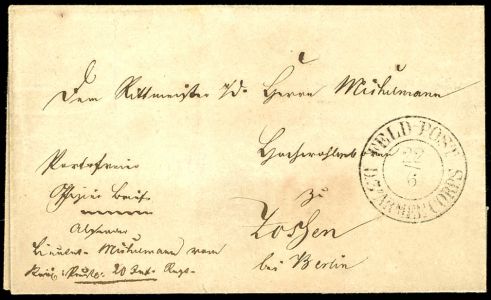 Dem Rittmeister a/d. Herrn Mühlmann
Hochwohlgeboren
zu
Zossen
bei Berlin
Portofreier
Offizier Brief
Absender
Lieuten. Mühlmann vom
20 Inf. Regt.
FELD-POST
22/6
ARMEE-CORPS